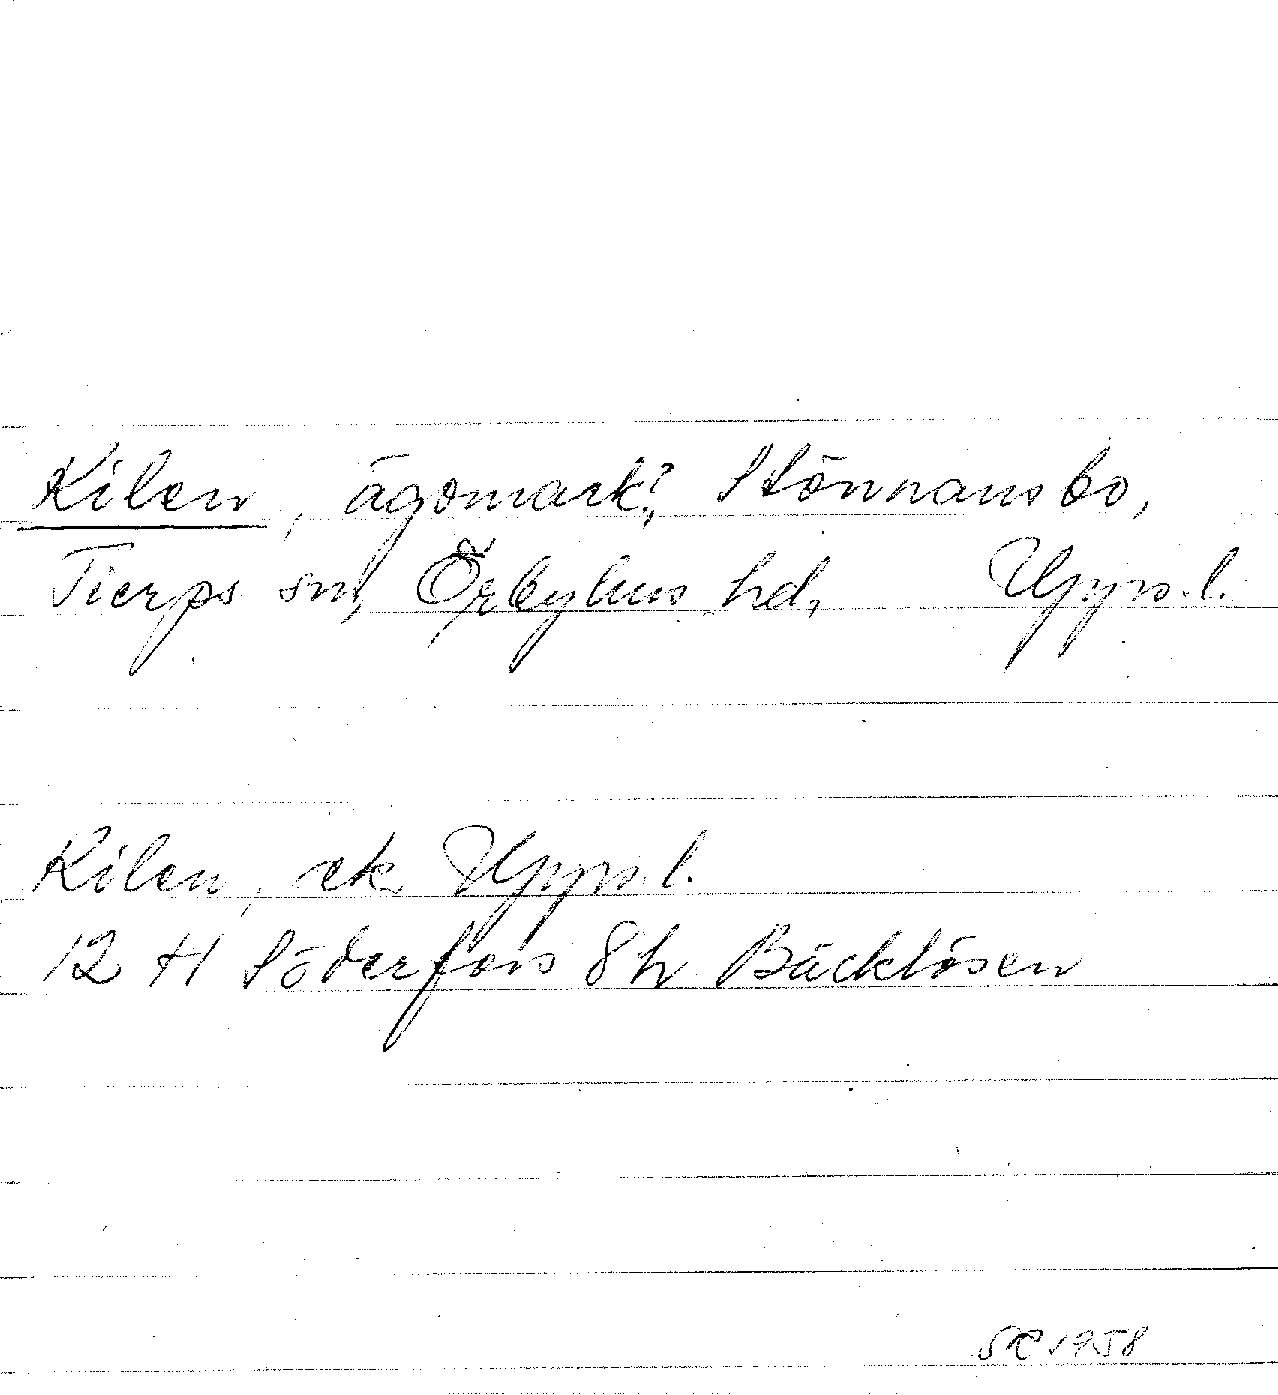 Kilen, ägomark?, Stönnansbo,
Tierps sn, Örbyhus hd, Uppl.
Kilen, ek Uppl.
12 H Söderfors 8h Bäcklösen
1958